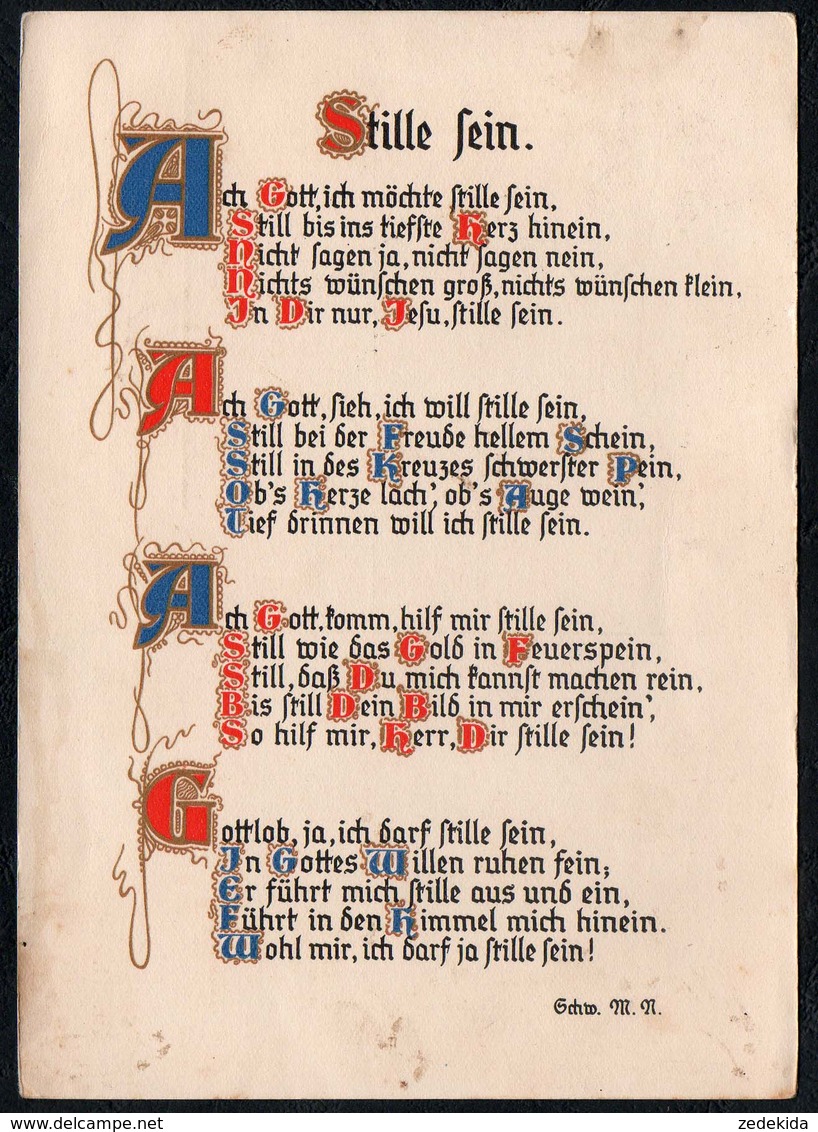 Stille sein.
Ach Gott, ich möchte stille sein,
Still bis ins tiefste Herz hinein,
Nicht sagen ja, nicht sagen nein,
Nichts wünschen groß, nichts wünschen klein,
In Dir nur, Jesu, stille sein.
Ach Gott, sieh, ich will stille sein,
Still bei der Freude hellem Schein,
Still in des Kreuzes schwerster Pein,
Ob's Herze lach', ob's Auge wein',
Tief drinnen will ich stille sein.
Ach Gott, komm, hilf mir stille sein,
Still wie das Gold in Feuerspein,
Still, daß Du mich kannst machen rein,
Bis still Dein Bild in mir erschein',
So hilf mir, Herr, Dir stille sein!
Gottlob, ja, ich darf stille sein,
In Gottes Willen ruhen fein;
Er führt mich stille aus und ein,
Führt in den Himmel mich hinein.
Wohl mir, ich darf ja stille sein!
Schw. M. N.
zedekida